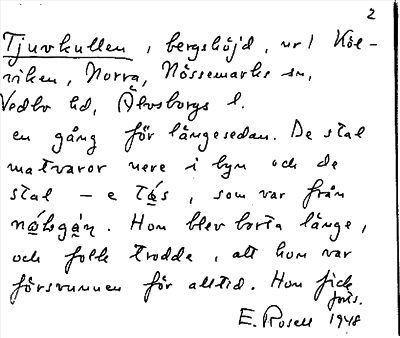 2
Tjuvkullen, bergshöjd, nr 1 Köl-
viken, Norra, Nössemarks sn,
Vedbo hd, Älvsborgs l.
en gång för längesedan. De stal
matvaror nere i byn och de
stal – e tås, som var från
Hon blev borta länge,
och folk trodde, att hon var
försvunnen för alltid. Hon fick
forts.
E. Rosell 1948